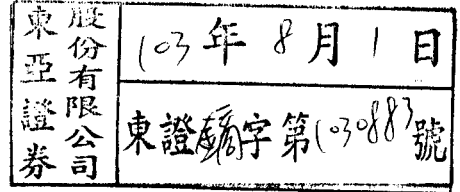 東亞證券
股份有限公司
103年8月1日
東證鏑字第1030883號